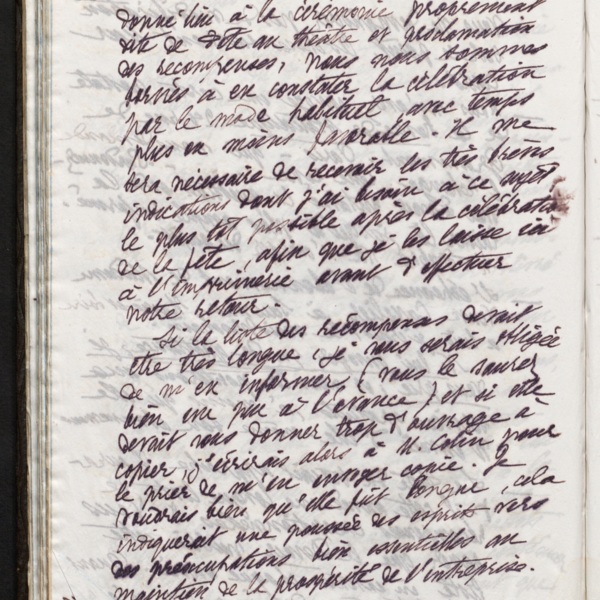 donné lieu à la cérémonie proprement
dite de fête au théâtre et proclamation
des récompenses, nous nous sommes
bornés à en constater la célébration
par le mode habituel, avec temps
plus ou moins favorable. Il me
sera nécessaire de recevoir les très brèves
indications dont j'ai besoin à ce sujet
le plus tôt possible après la célébration
de la fête, afin que je les laisse ici
à l'imprimerie avant d'effectuer
notre retour.
Si la liste des récompenses devait
être très longue, je vous serais obligée
de m'en informer, (vous le saurez
bien un peu à l'avance) et si elle
devait vous donner trop d'ouvrage à
copier, j'écrirais alors à M. Colin pour
le prier de m'en envoyer copie. Je
voudrais bien qu'elle fût longue, cela
indiquerait une poussée des esprits vers
des préoccupations bien essentielles au
maintien de la prospérité de l'entreprise.